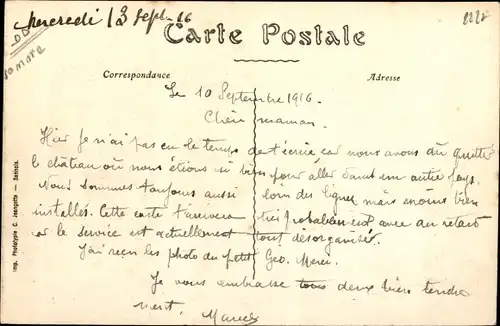 Mercredi 13 Sept. 16
Somme
Carte Postale
Correspondance
Adresse
Le 10 Septembre 1916.
Chère maman.
Hier je n'ai pas eu le temps de t'écrire car nous avons dû quitter
le château où nous étions si bien pour aller dans un autre pays.
Nous sommes toujours aussi loin des lignes mais moins bien
installés. Cette carte t'arrivera très probablement avec du retard
car le service est actuellement tout désorganisé.
J'ai reçu les photo du petit Geo. Merci.
Je vous embrasse tous deux bien tendre
ment.
Imp. Phototypie C. — Senlis.